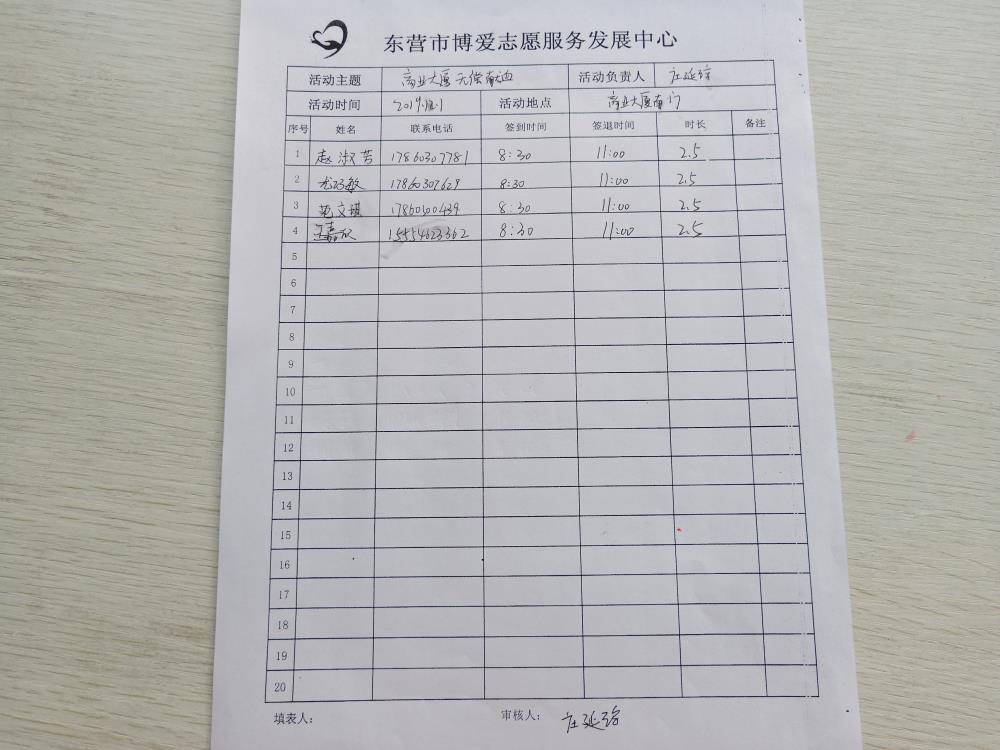 东营市博爱志愿服务发展中心
活动主题 商业大厦无偿献血 活动负责人 庄延
活动时间 2019.12.1 活动地点 商业大厦南门
序号 姓名 联系电话 签到时间 签退时间 时长 备注
1 赵淑芳 17860307781 8:30 11:00 2.5
2 尤巧敏 17860307629 8:30 11:00 2.5
3 范文琪 17860300439 8:30 11:00 2.5
4 王嘉欣 15554623362 8:30 11:00 2.5
5
6
7
8
9
10
11
12
13
14
15
16
17
18
19
20
填表人: 审核人: 庄延